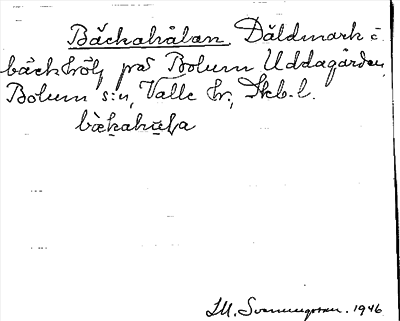 Bäckahålan. Däldmark i
bäckhölj på Bolum Uddagården,
Bolum s:n, Valle hr., Skb. l.
bækahuḷa
M. Svenungsson. 1946